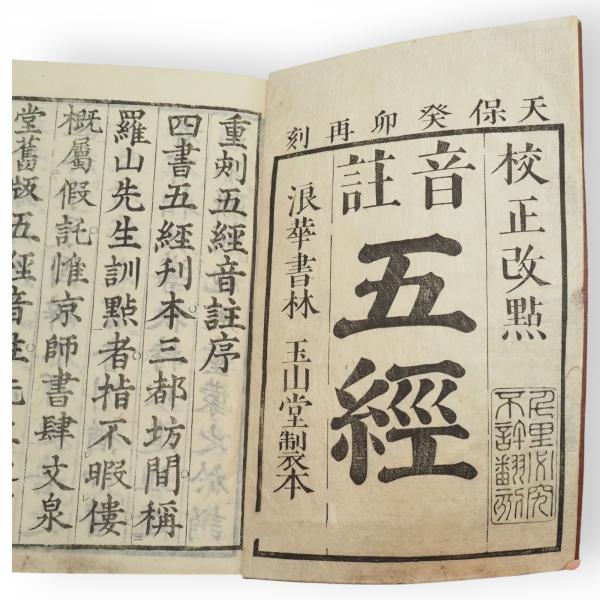 天保癸卯再刻
校正改點
音註
五經
浪華書林 玉山堂製本
不許翻刻
重刻五經音註序
四書五經刊本三都坊間稱
羅山先生訓點者指不暇僂
概屬假託惟京師書肆文泉
堂舊板五經音註元